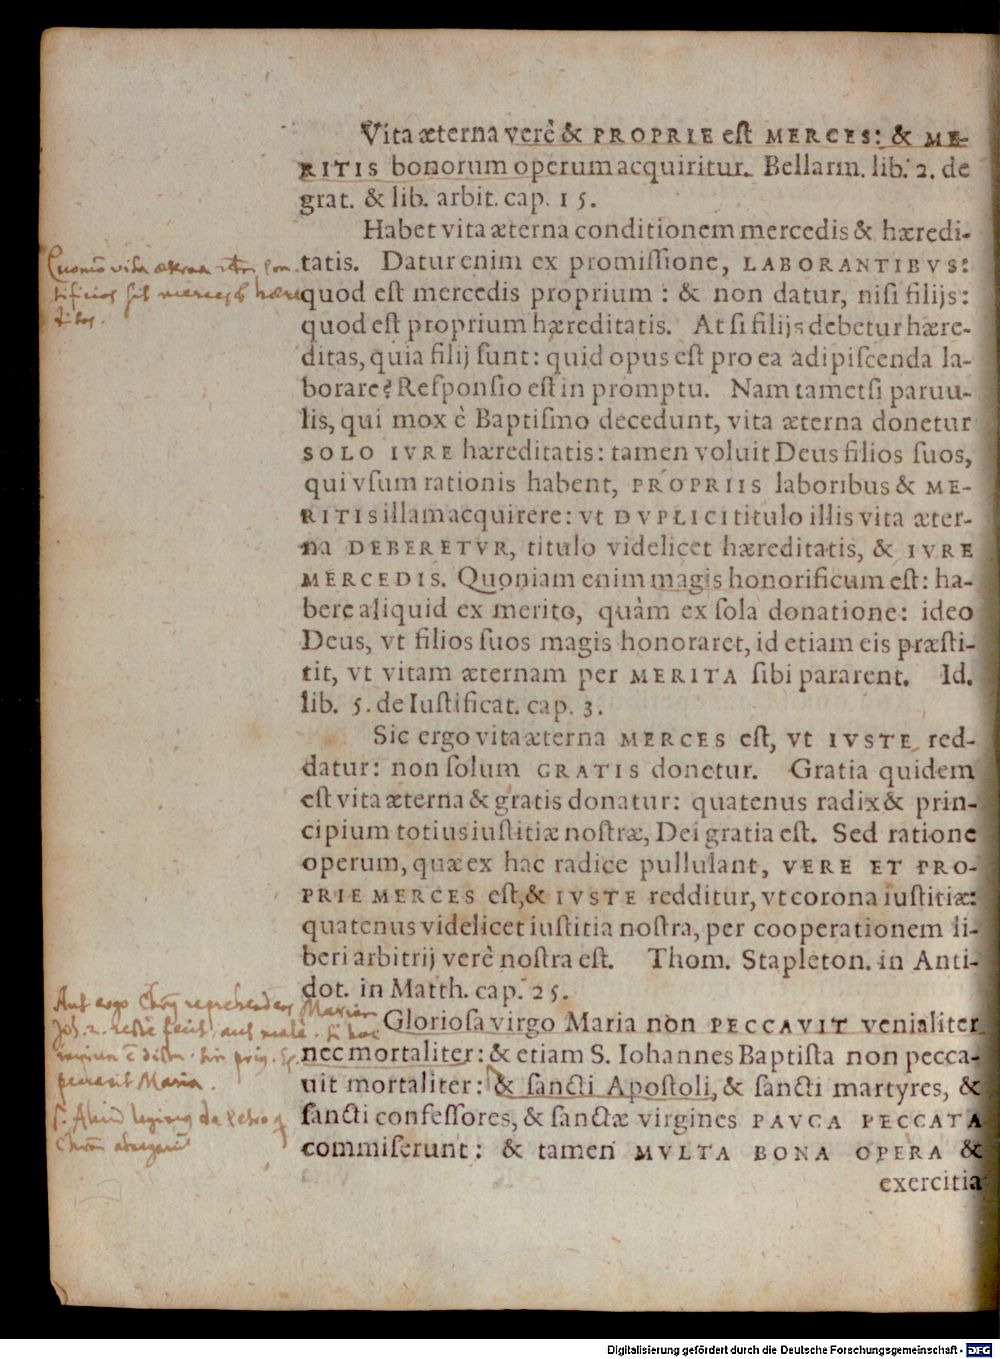 Vita æterna verè & PROPRIE est MERCES: & ME-
RITIS bonorum operum acquiritur. Bellarm. lib. 2. de
grat. & lib. arbit. cap. 15.
Habet vita æterna conditionem mercedis & hæredi-
tatis. Datur enim ex promissione, LABORANTIBVS:
quod est mercedis proprium: & non datur, nisi filijs:
quod est proprium hæreditatis. At si filijs debetur hære-
ditas, quia filij sunt: quid opus est pro ea adipiscenda la-
borare? Responsio est in promptu. Nam tametsi paruu-
lis, qui mox è Baptismo decedunt, vita æterna donetur
SOLO IVRE hæreditatis: tamen voluit Deus filios suos,
qui vsum rationis habent, PROPRIIS laboribus & ME-
RITIS illam acquirere: vt DVPLICI titulo illis vita æter-
na DEBERETVR, titulo videlicet hæreditatis, & IVRE
MERCEDIS. Quoniam enim magis honorificum est: ha-
bere aliquid ex merito, quàm ex sola donatione: ideo
Deus, vt filios suos magis honoraret, id etiam eis præsti-
tit, vt vitam æternam per MERITA sibi pararent. Id.
lib. 5. de Iustificat. cap. 3.
Sic ergo vita æterna MERCES est, vt IVSTE red-
datur: non solum GRATIS donetur. Gratia quidem
est vita æterna & gratis donatur: quatenus radix & prin-
cipium totius iustitiæ nostræ, Dei gratia est. Sed ratione
operum, quæ ex hac radice pullulant, VERE ET PRO-
PRIE MERCES est, & IVSTE redditur, vt corona iustitiæ:
quatenus videlicet iustitia nostra, per cooperationem li-
beri arbitrij verè nostra est. Thom. Stapleton. in Anti-
dot. in Matth. cap. 25.
Gloriosa virgo Maria non PECCAVIT venialiter
nec mortaliter: & etiam S. Iohannes Baptista non pecca-
uit mortaliter: & sancti Apostoli, & sancti martyres, &
sancti confessores, & sanctæ virgines PAVCA PECCATA
commiserunt: & tamen MVLTA BONA OPERA &
exercitia
vita æterna
sit merces &
Aut ergo
Maria
Joh. 2. recte fecit, aut male. Si hoc
Maria.
de Petro
Digitalisierung gefördert durch die Deutsche Forschungsgemeinschaft - DFG